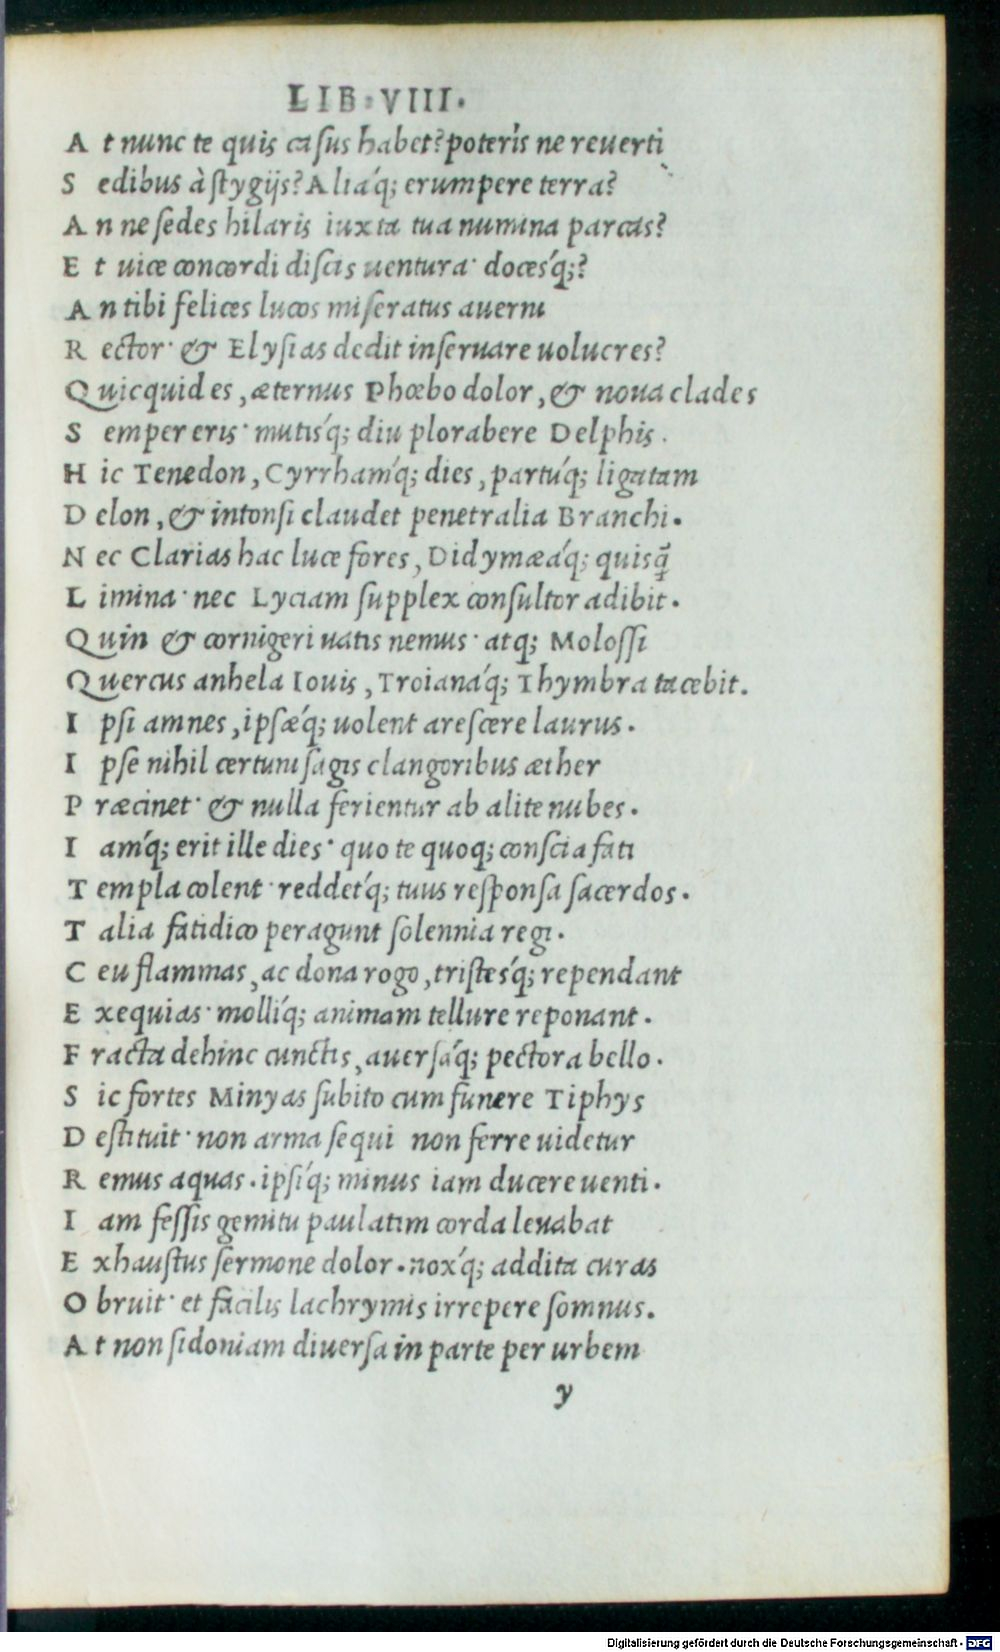 LIB·VIII.
A t nunc te quis caſus habet? poteris ne reuerti
S edibus à ſtygijs? Aliáq; erumpere terra?
A n ne ſedes hilaris iuxta tua numina parcas?
E t uice concordi diſcis uentura· docesq́;?
A n tibi felices lucos miſeratus auerni
R ector· & Elyſias dedit inſeruare uolucres?
Quicquid es, æternus Phœbo dolor, & noua clades
S emper eris· mutisq́; diu plorabere Delphis.
H ic Tenedon, Cyrrhamq́; dies, partuq́; ligatam
D elon, & intonſi claudet penetralia Branchi.
N ec Clarias hac luce fores, Didymæaq́; quisq̃
L imina· nec Lyciam ſupplex conſultor adibit.
Quin & cornigeri uatis nemus· atq; Moloſſi
Quercus anhela Iouis, Troianaq́; Thymbra tacebit.
I pſi amnes, ipſæq́; uolent areſcere laurus.
I pſe nihil certum ſagis clangoribus æther
P ræcinet· & nulla ferientur ab alite nubes.
I amq́; erit ille dies· quo te quoq; conſcia fati
T empla colent· reddetq́; tuus reſponſa ſacerdos.
T alia fatidico peragunt ſolennia regi.
C eu flammas, ac dona rogo, triſtesq́; rependant
E xequias· molliq́; animam tellure reponant.
F racta dehinc cunctis, auerſaq́; pectora bello.
S ic fortes Minyas ſubito cum funere Tiphys
D eſtituit· non arma ſequi non ferre uidetur
R emus aquas. ipſiq́; minus iam ducere uenti.
I am feſſis gemitu paulatim corda leuabat
E xhauſtus ſermone dolor. noxq́; addita curas
O bruit· et facilis lachrymis irrepere ſomnus.
A t non ſidoniam diuerſa in parte per urbem
y
Digitalisierung gefördert durch die Deutsche Forschungsgemeinschaft - DFG